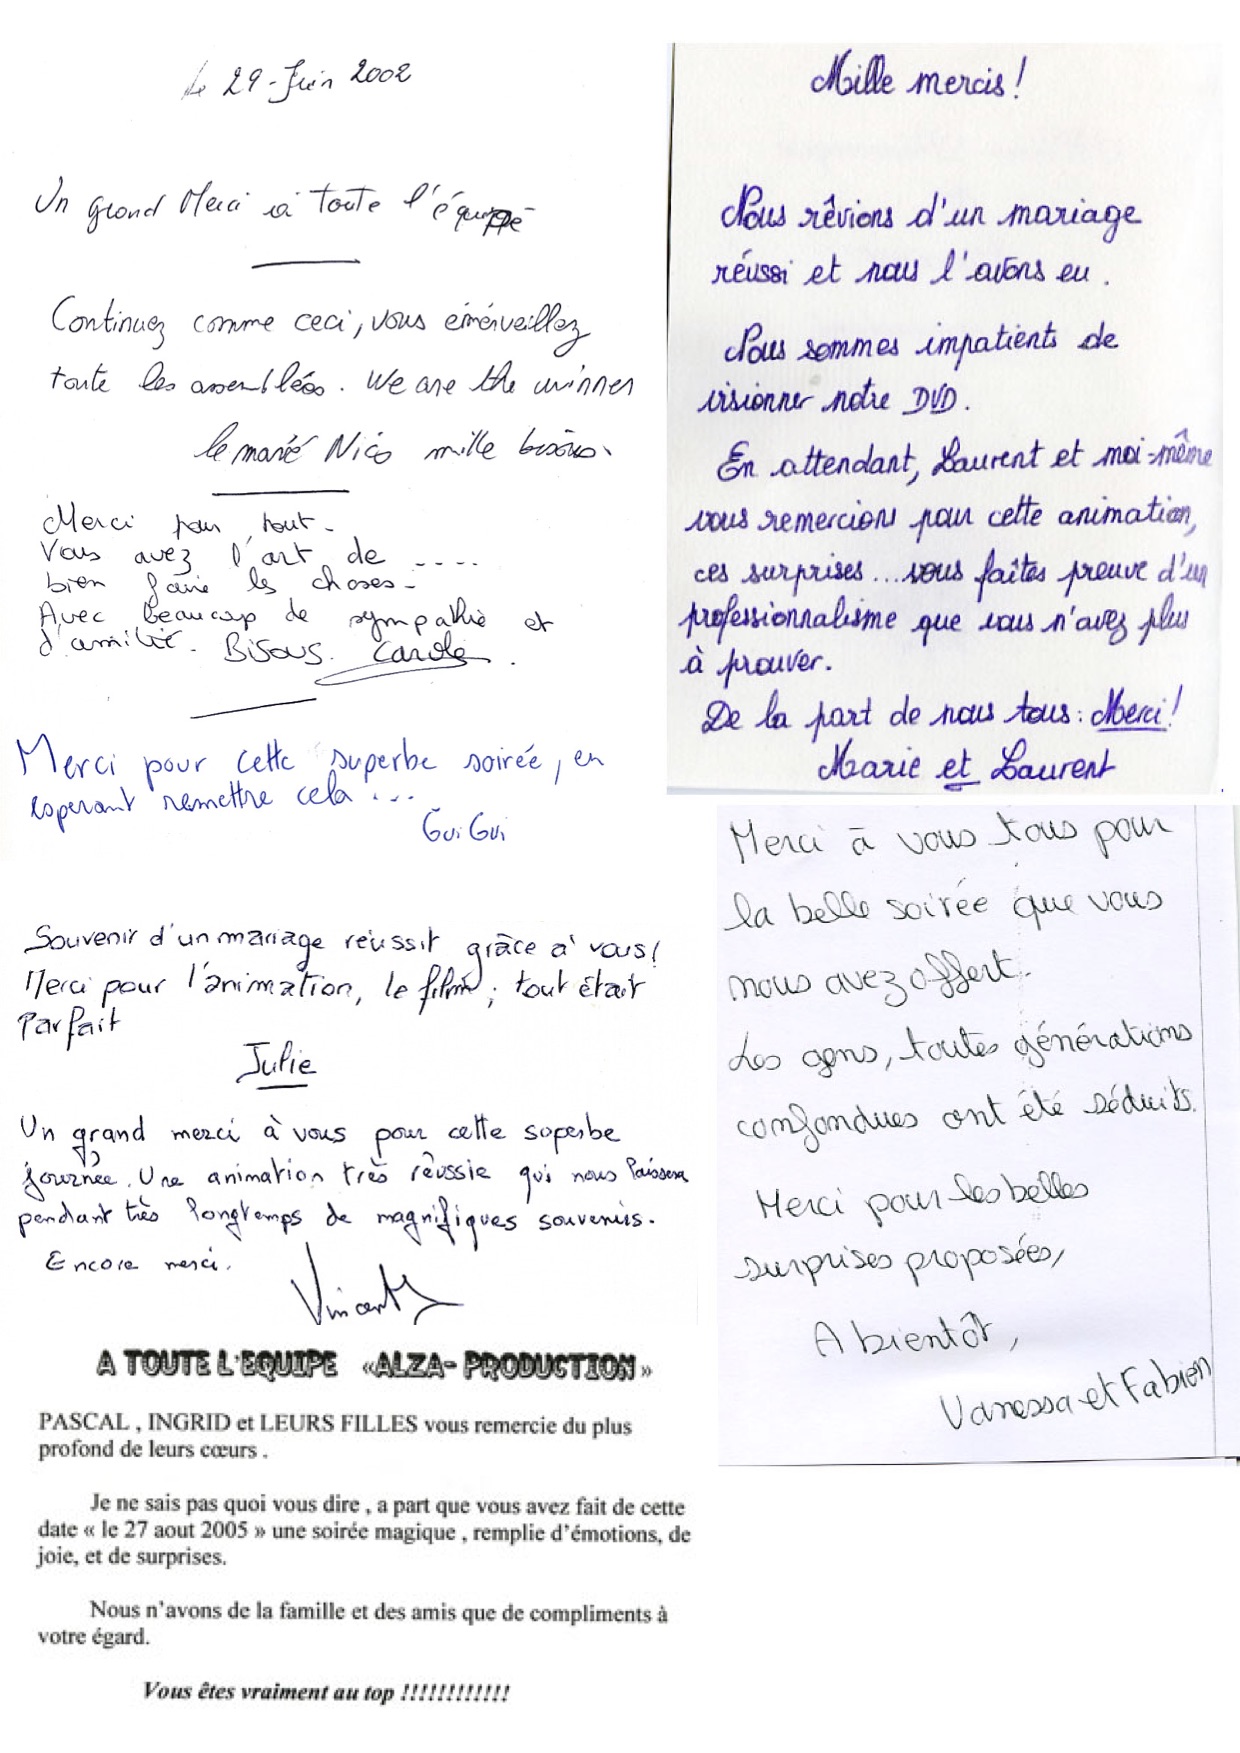 Le 29-Juin 2002
Un grand Merci à toute l'équipe
Continuez comme ceci, vous émérveillez
toute les assemblées. We are the winner
le marié Nico mille bisous.
Merci pour tout-
Vous avez l'art de ....
bien faire les choses-
Avec beaucoup de sympathie et
d'amitié. Bisous. Carole.
Merci pour cette superbe soirée, en
esperant remettre cela ...
GuiGui
Souvenir d'un mariage réussit grâce à vous!
Merci pour l'animation, le film; tout était
Parfait
Julie
Un grand merci à vous pour cette superbe
journée. Une animation très réussie qui nous laissera
pendant très longtemps de magnifiques souvenirs.
Encore merci.
Vincent
A TOUTE L'EQUIPE «ALZA- PRODUCTION»
PASCAL , INGRID et LEURS FILLES vous remercie du plus
profond de leurs cœurs .
Je ne sais pas quoi vous dire , a part que vous avez fait de cette
date « le 27 aout 2005 » une soirée magique , remplie d'émotions, de
joie, et de surprises.
Nous n'avons de la famille et des amis que de compliments à
votre égard.
Vous êtes vraiment au top !!!!!!!!!!!!
Mille mercis!
Nous rêvions d'un mariage
réussi et nous l'avons eu.
Nous sommes impatients de
visionner notre DVD.
En attendant, Laurent et moi-même
vous remercions pour cette animation,
ces surprises... vous faîtes preuve d'un
professionnalisme que vous n'avez plus
à prouver.
De la part de nous tous: Merci!
Marie et Laurent
Merci à vous tous pour
la belle soirée que vous
nous avez offert.
Les gens, toutes générations
confondues ont été séduits.
Merci pour les belles
surprises proposées,
A bientôt,
Vanessa et Fabien